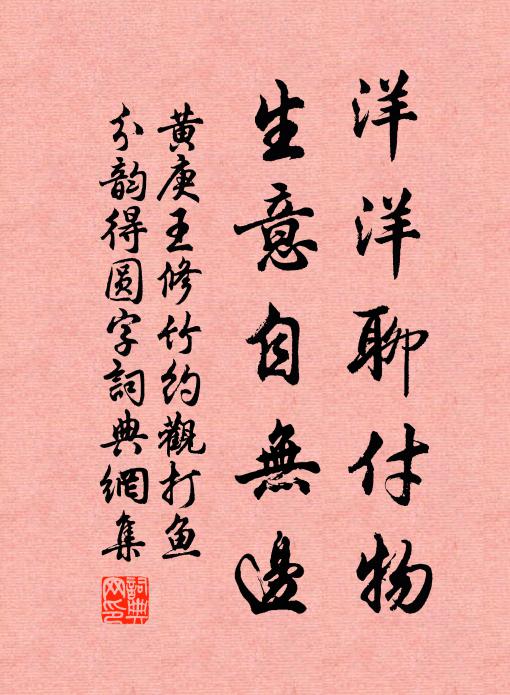 洋洋聊付物
生意自無邊
黃庚王修竹約觀打魚
分韵得圓字詞典網集
詞典網印